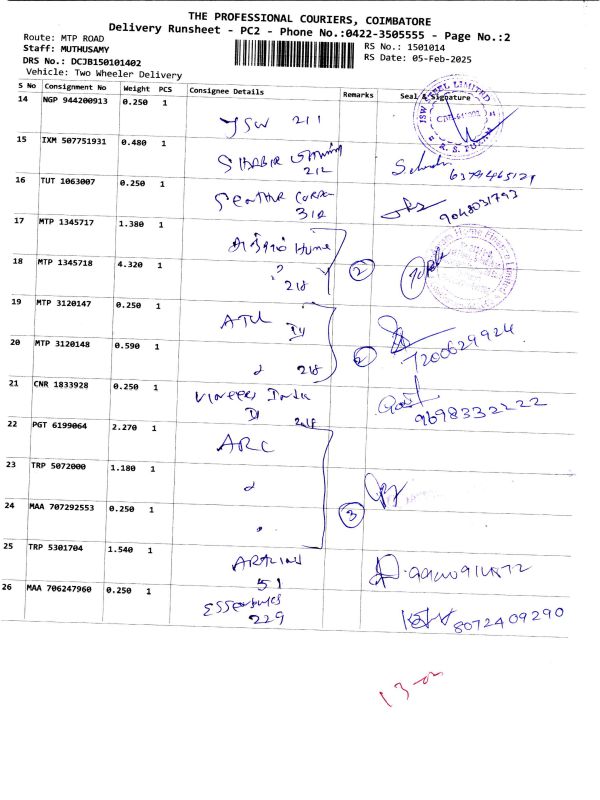 THE PROFESSIONAL COURIERS, COIMBATORE
Delivery Runsheet - PC2 - Phone No.:0422-3505555 - Page No.:2
Route: MTP ROAD
Staff: MUTHUSAMY
RS No.: 1501014
DRS No.: DCJB150101402
RS Date: 05-Feb-2025
Vehicle: Two Wheeler Delivery
S No Consignment No Weight PCS Consignee Details Remarks Seal & Signature
14 NGP 944200913 0.250 1
JSW 211
JSW STEEL LIMITED
15 IXM 507751931 0.480 1
212
6379465129
16 TUT 1063007 0.250 1
312
9048031793
17 MTP 1345717 1.380 1
Home
18 MTP 1345718 4.320 1
218
2
19 MTP 3120147 0.250 1
ATU
20 MTP 3120148 0.590 1
218
2
7200629924
21 CNR 1833928 0.250 1
India
218
9698332222
22 PGT 6199064 2.270 1
ARC
23 TRP 5072000 1.180 1
24 MAA 707292553 0.250 1
3
25 TRP 5301704 1.540 1
51
26 MAA 706247960 0.250 1
229
8072409290
13-02